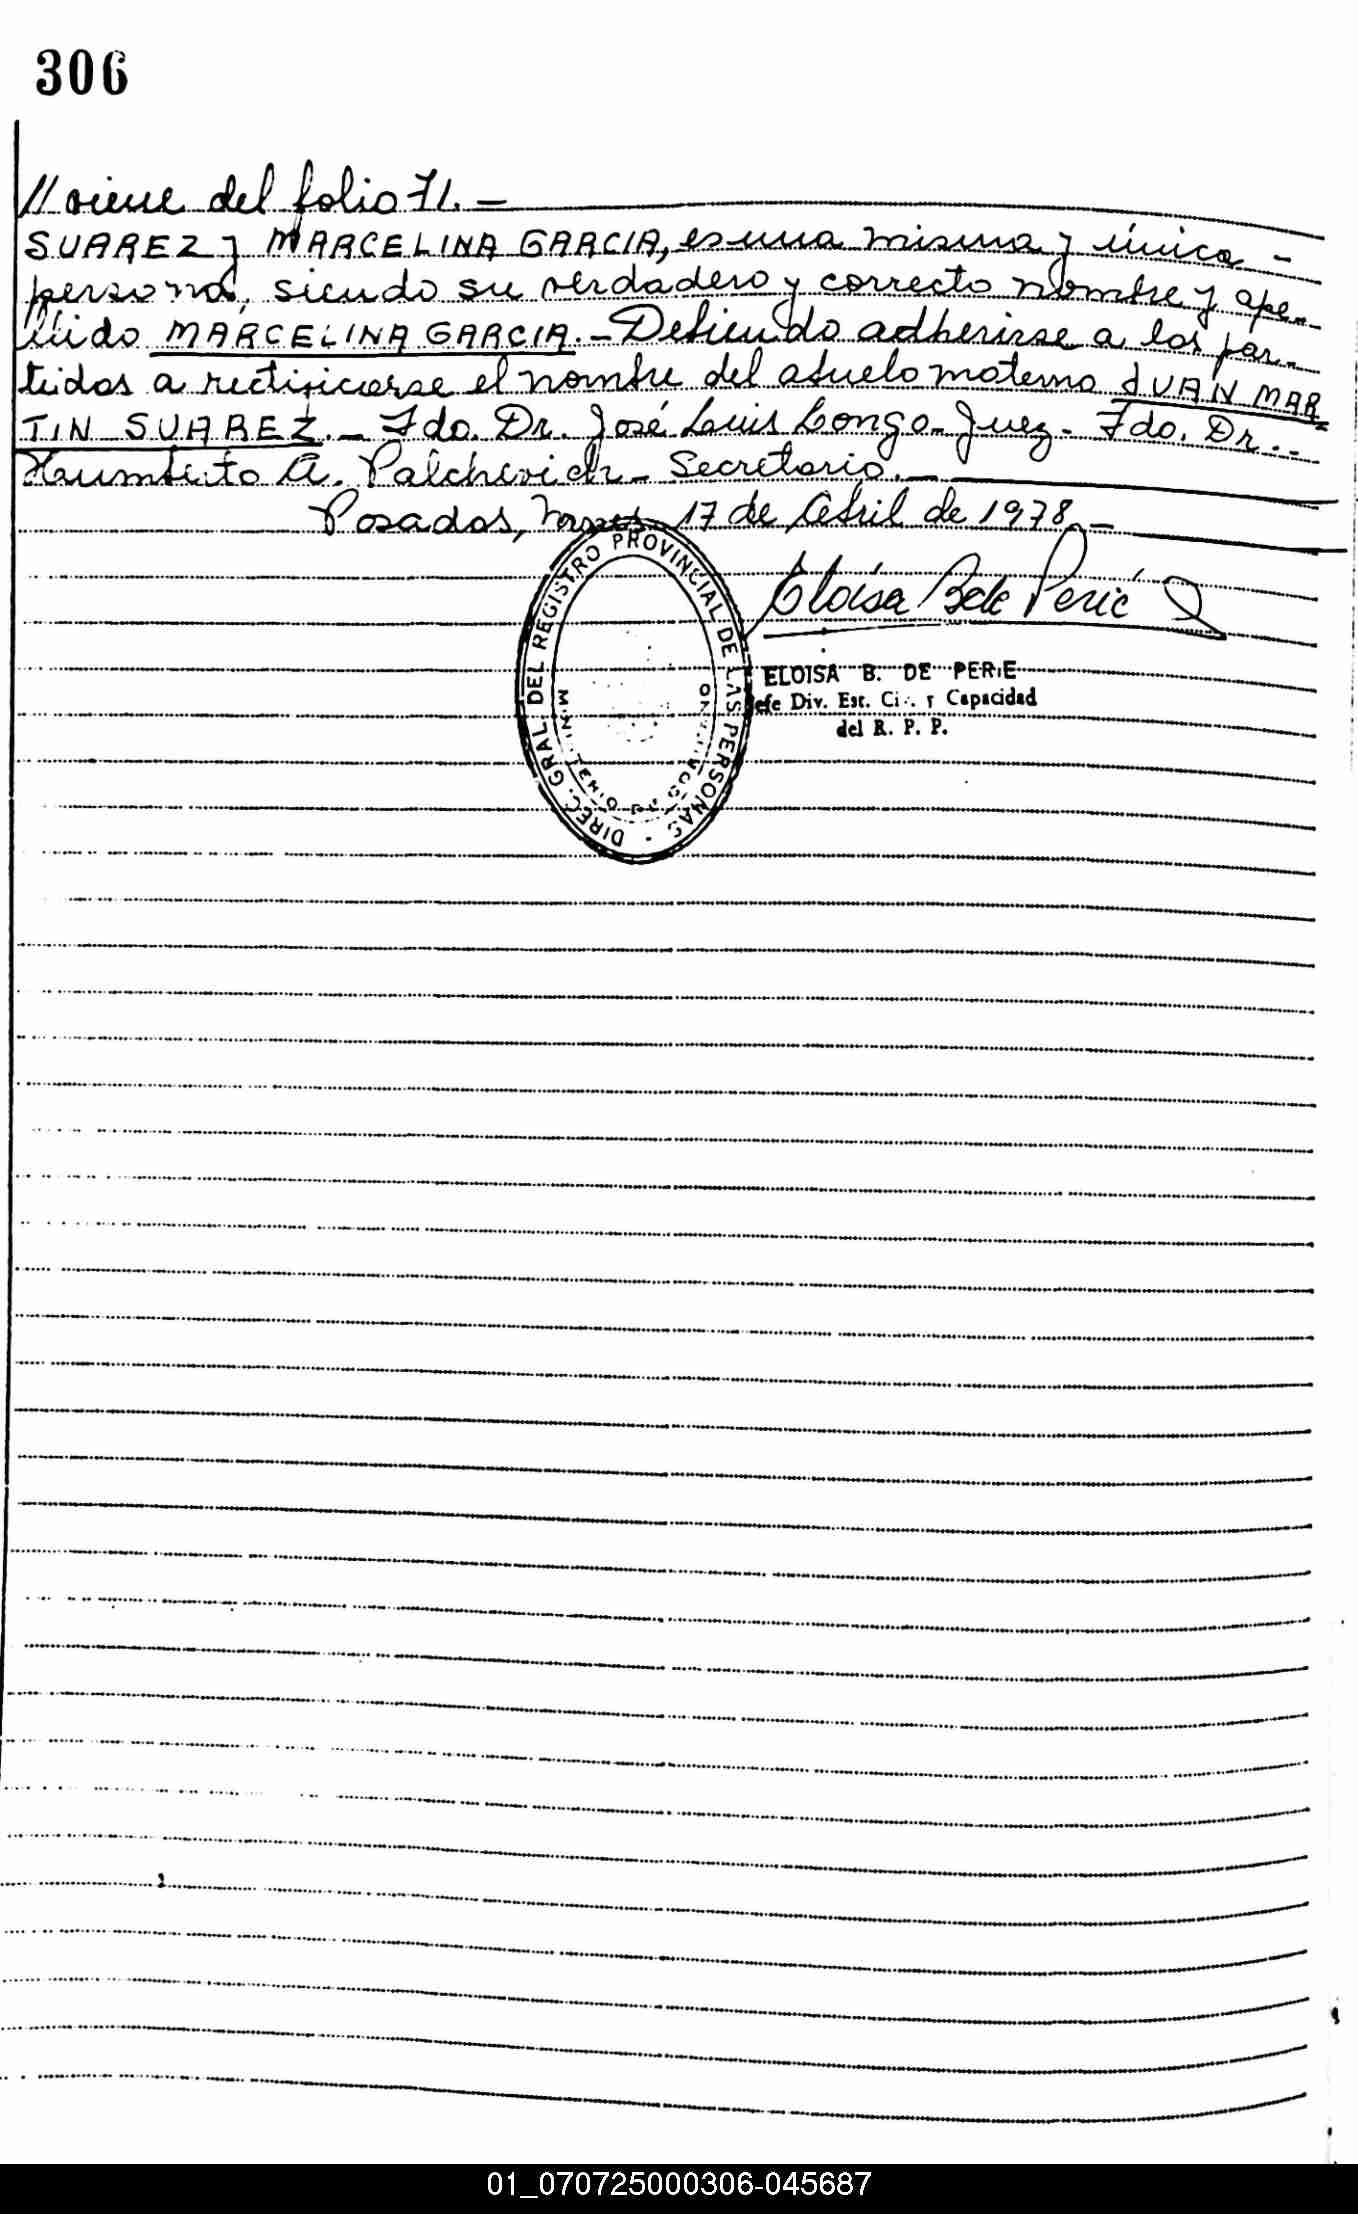 306
// viene del folio 71.—
SUAREZ y MARCELINA GARCIA, es una misma y única -
persona, siendo su verdadero y correcto nombre y ape-
llido MARCELINA GARCIA.- Debiendo adherirse a las par-
tidas a rectificarse el nombre del abuelo materno JUAN MAR
TIN SUAREZ.- Fdo. Dr. José Luis Longo- Juez- Fdo. Dr.-
Humberto A. Palchevich- Secretario.—
Posadas, 17 de Abril de 1978.—
DIREC. GRAL DEL REGISTRO PROVINCIAL DE LAS PERSONAS -
ELOISA B. DE PERIE
Jefe Div. Est. Civ. y Capacidad
del R. P. P.
01_070725000306-045687